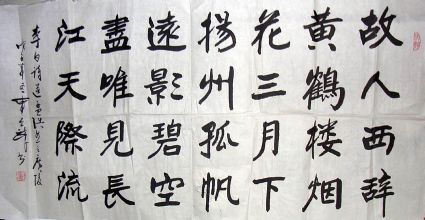 故人西辞
黄鶴楼烟
花三月下
揚州孤帆
遠影碧空
盡唯見長
江天際流
李白詩送孟浩然之廣陵